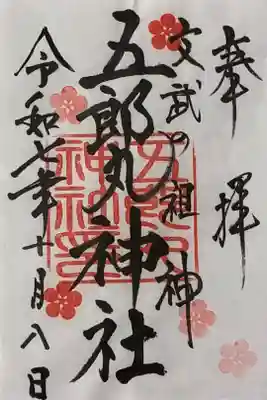 奉拝
文武の祖神
五郎丸神社
令和七年十月八日
五郎丸神社印